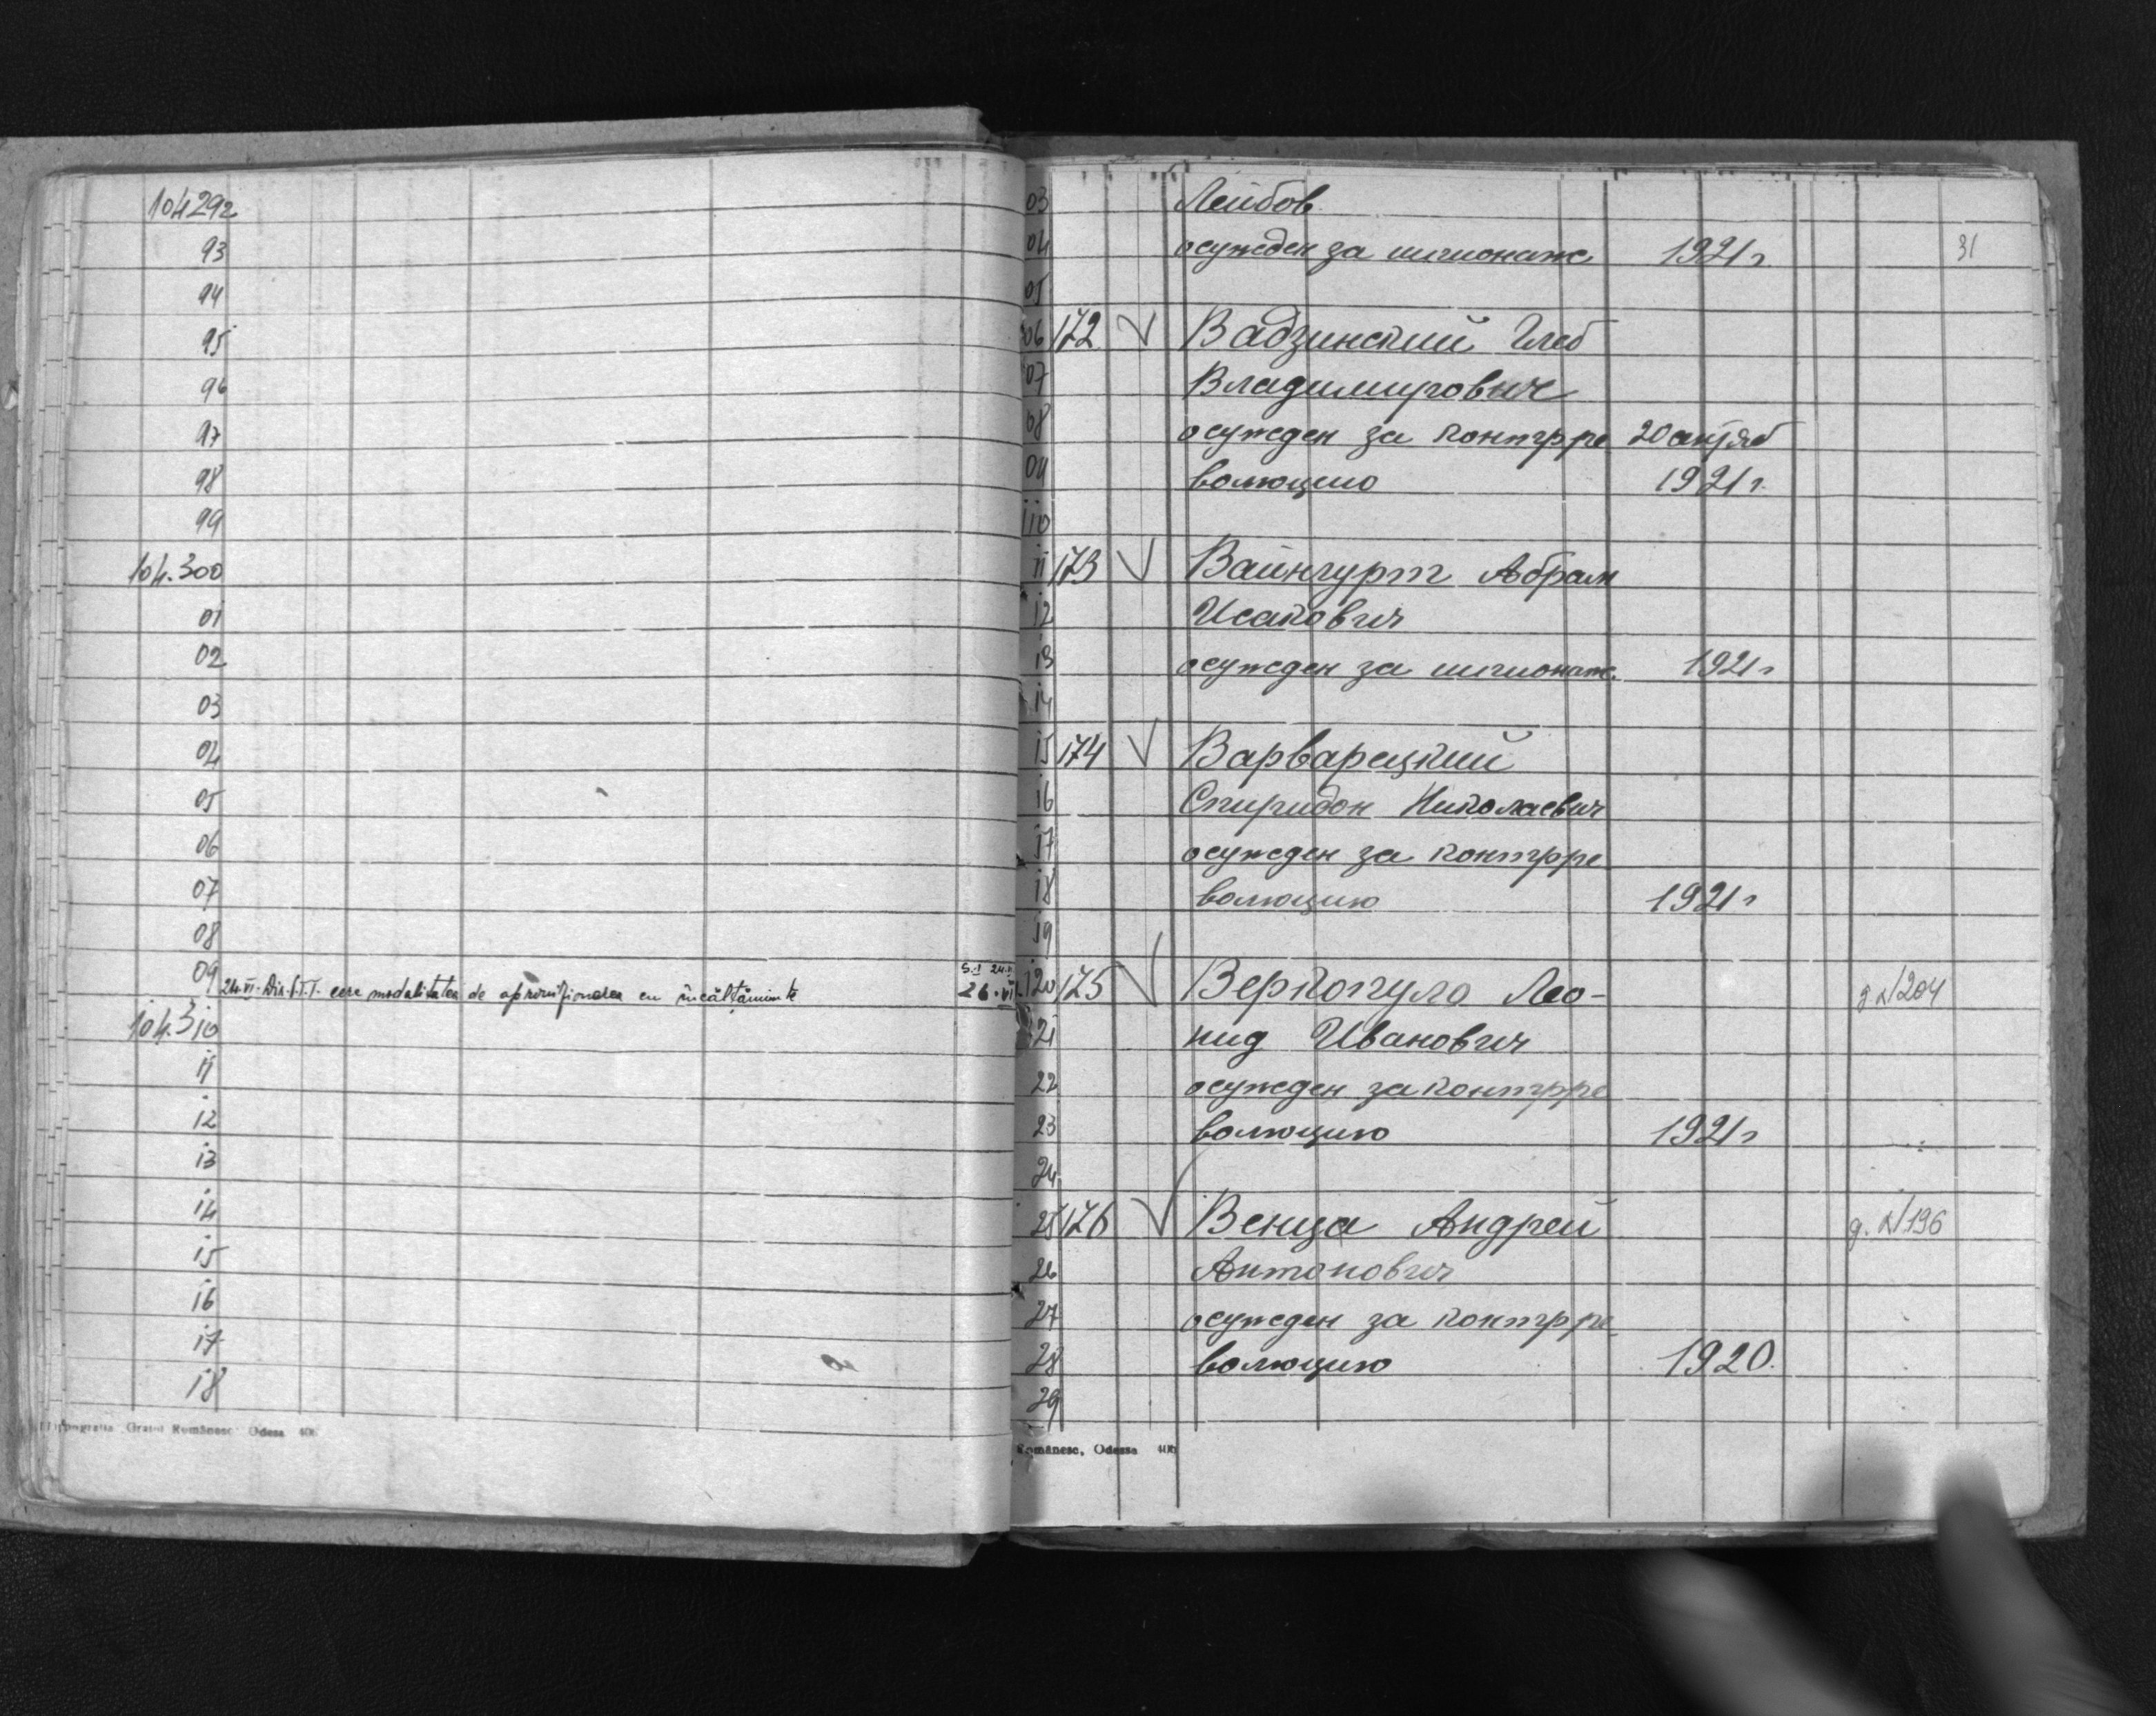 104292
93
94
95
96
97
98
99
104.300
01
02
03
04
05
06
07
08
09 24.VI. Dir. cere modalitatea de aprovizionarea cu încălțăminte 26.VI
104.310
11
12
13
14
15
16
17
18
Odesa 406
03 Лейбов
04 осужден за шпионаж 1921 г. 31
05
06 172 Вадзинский Глеб
07 Владимирович
08 осужден за контрре 20 октяб
09 волюцию 1921 г.
110
11 173 Вайнгурт Абрам
12 Исакович
13 осужден за шпионаж. 1921 г
14
15 174 Варварецкий
16 Спиридон Николаевич
17 осужден за контрре
18 волюцию 1921 г
19
120 175 Веркопуло Лео- д. № 204
21 нид Иванович
22 осужден за контрре
23 волюцию 1921 г
24
25 176 Венца Андрей д. № 196
26 Антонович
27 осужден за контрре
28 волюцию 1920.
29
Românesc, Odessa 406